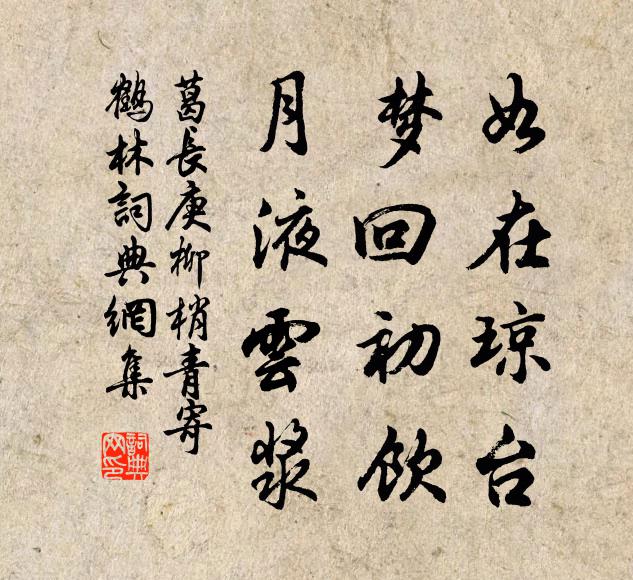 如在琼台
梦回初饮
月液雲漿
葛長庚柳梢青寄
鶴林詞典網集
詞典网印